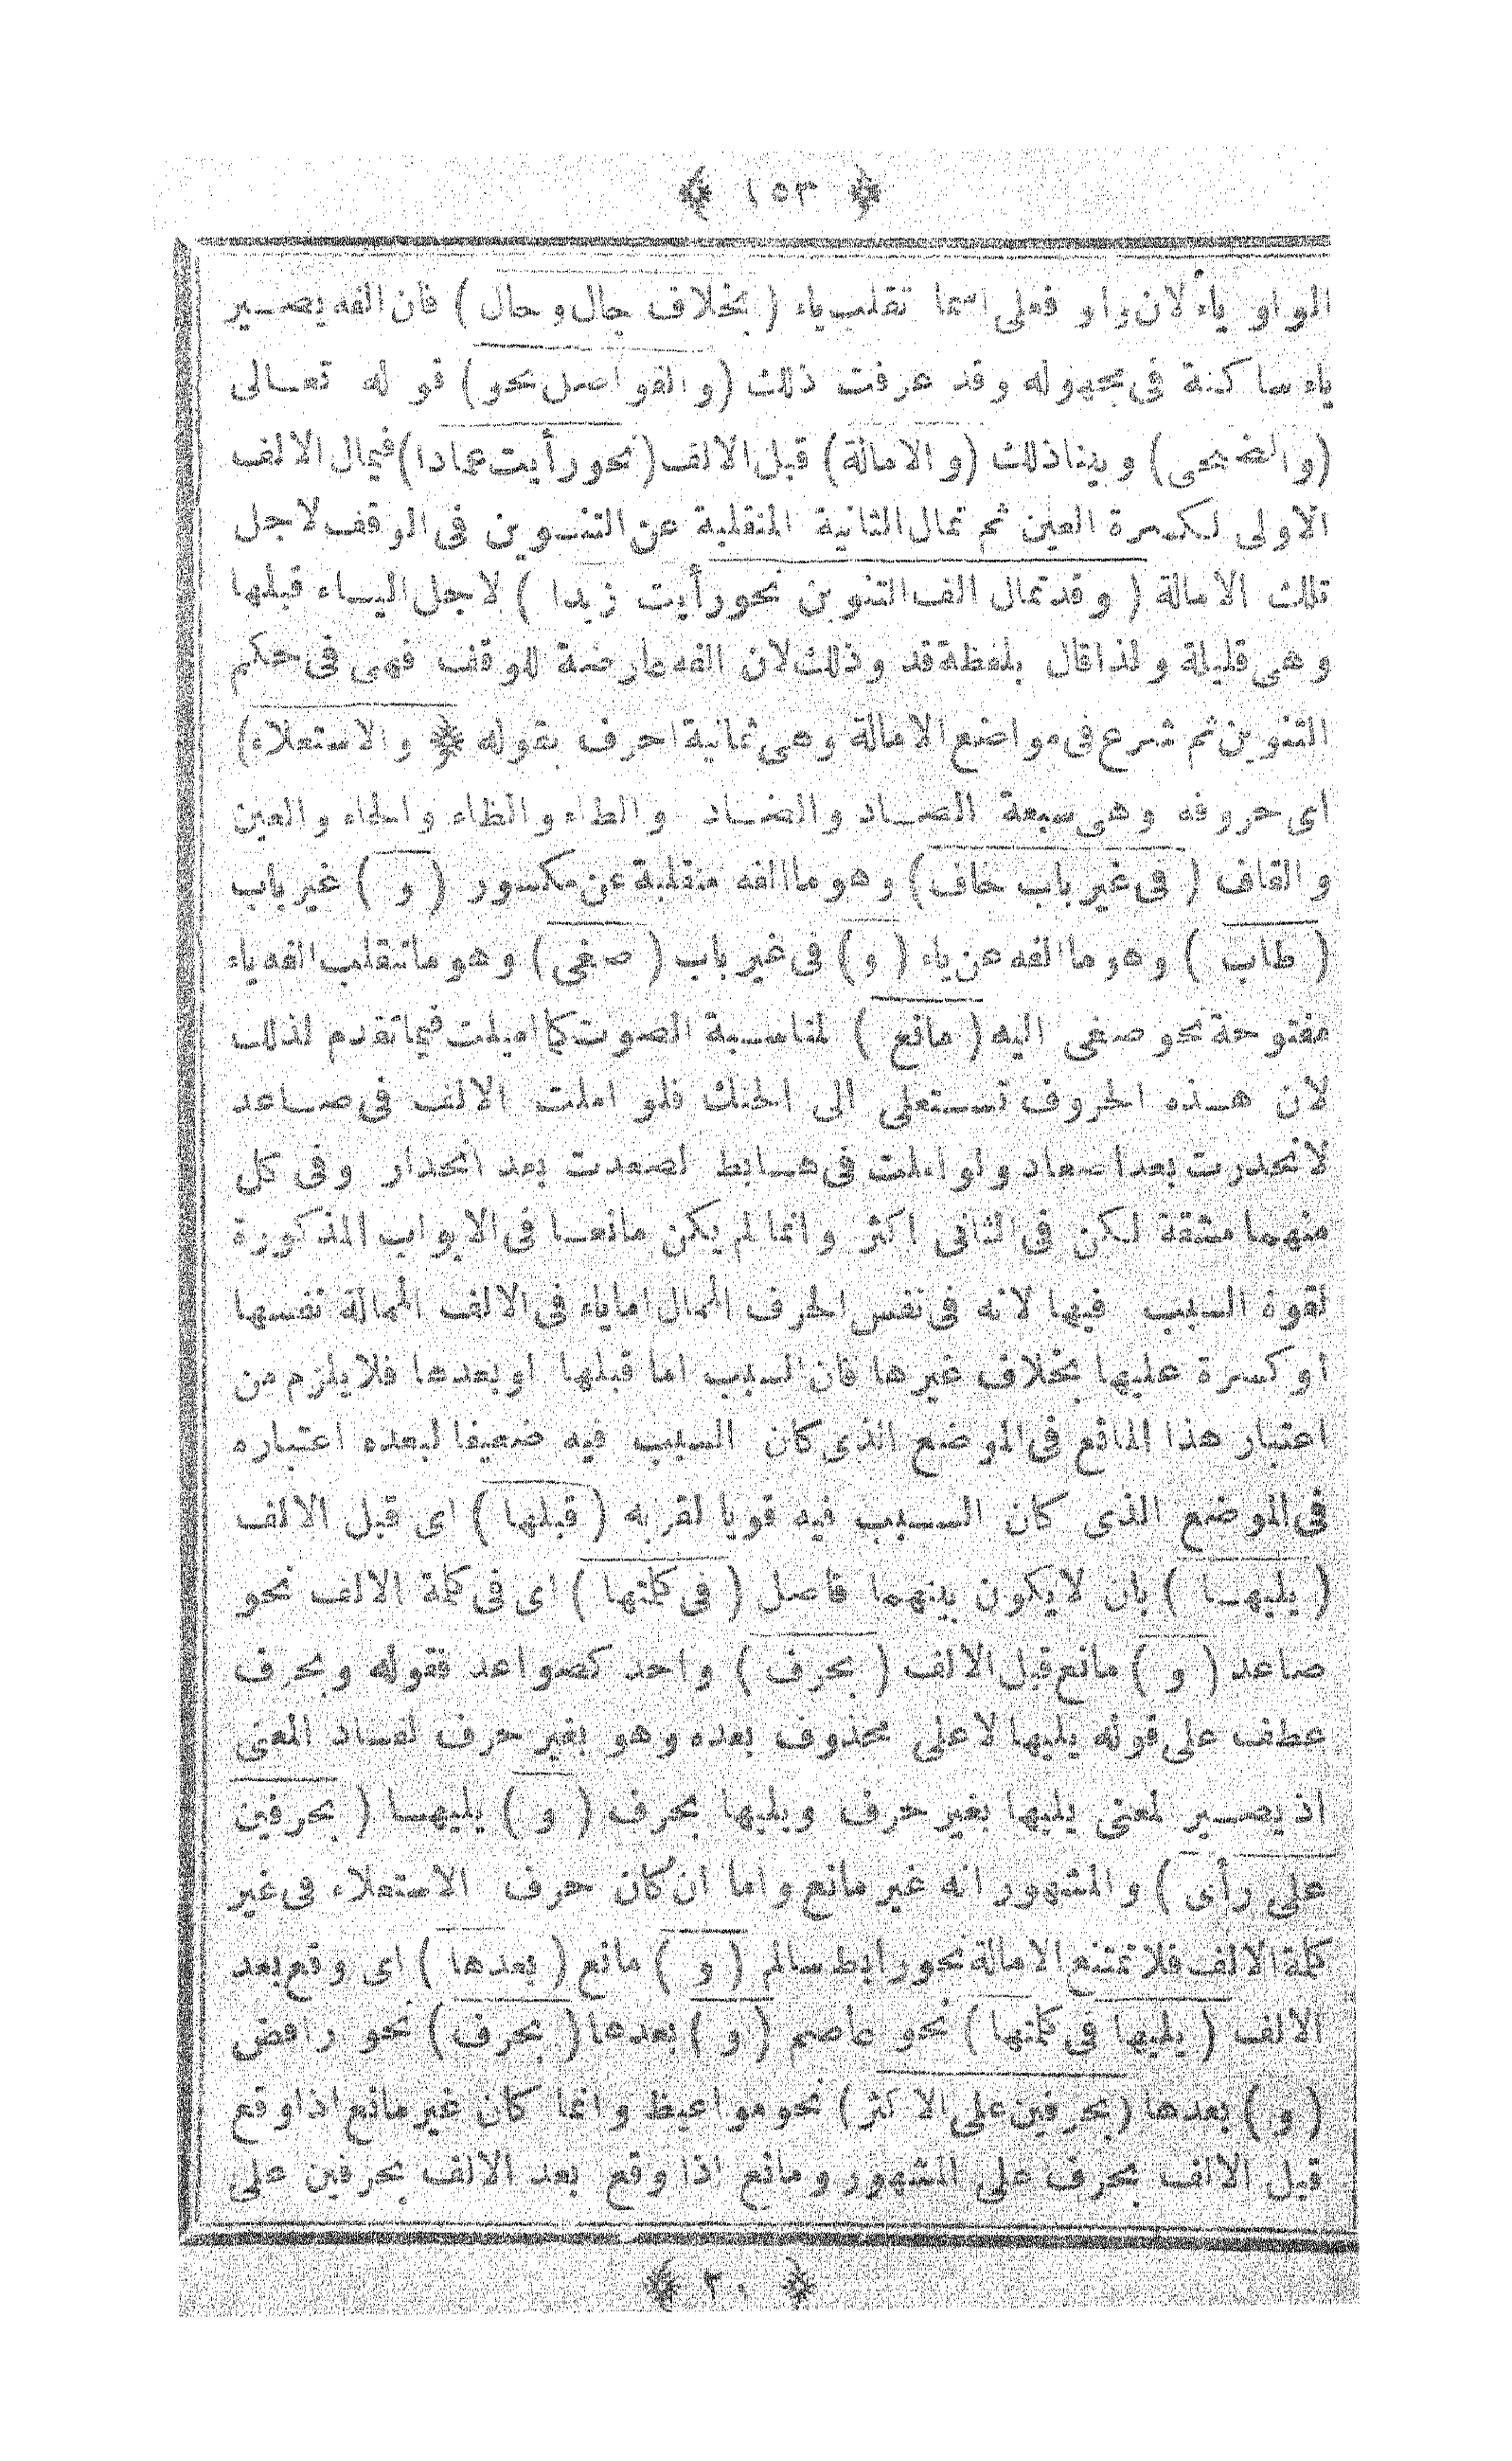 ﴿ ١٥٣ ﴾
الواو ياء لان واو فعلى اسما تقلب ياء ( بخلاف جال وحال ) فان الفه يصير
ياء ساكنة فى مجهوله وقد عرفت ذلك (والفواصل نحو) قوله تعالى
(والضحى) وبينا ذلك (والامالة) قبل الالف (نحو رأيت عمادا) فيمال الالف
الاولى لكسرة العين ثم تمال الثانية المنقلبة عن التنوين فى الوقف لاجل
تلك الامالة ( وقد تمال الف التنوين نحو رأيت زيدا ) لاجل الياء قبلها
وهى قليلة ولذا قال بلفظة قد وذلك لان الفه عارضة للوقف فهى فى حكم
التنوين ثم شرع فى مواضع الامالة وهى ثمانية احرف بقوله ﴿ والاستعلاء)
اى حروفه وهى سبعة الصاد والضاد والطاء والظاء والخاء والغين
والقاف ( فى غير باب خاف) وهو ما الفه منقلبة عن مكسور ( و ) غير باب
( طاب ) وهو ما الفه عن ياء ( و) فى غير باب ( صغى) وهو ما تنقلب الفه ياء
مفتوحة نحو صغى اليه ( مانع ) لمناسبة الصوت كما اميلت فيما تقدم لذلك
لان هذه الحروف تستعلى الى الحنك فلو املت الالف فى صاعد
لانحدرت بعد اصعاد ولو املت فى هابط لصعدت بعد انحدار وفى كل
منهما مشقة لكن فى الثانى اكثر وانما لم يكن مانعا فى الابواب المذكورة
لقوة السبب فيها لانه فى نفس الحرف الممال اما ياء فى الالف الممالة نفسها
او كسرة عليها بخلاف غيرها فان السبب اما قبلها او بعدها فلا يلزم من
اعتبار هذا المانع فى الموضع الذى كان السبب فيه ضعيفا لبعده اعتباره
فى الموضع الذى كان السبب فيه قويا لقربه ( قبلها ) اى قبل الالف
( يليها ) بان لا يكون بينهما فاصل ( فى كلمتها ) اى فى كلمة الالف نحو
صاعد ( و ) مانع قبل الالف ( بحرف ) واحد كصواعد فقوله وبحرف
عطف على قوله يليها لا على محذوف بعده وهو بغير حرف لفساد المعنى
اذ يصير لمعنى يليها بغير حرف ويليها بحرف ( و ) يليها ( بحرفين
على رأى ) والمشهور انه غير مانع واما ان كان حرف الاستعلاء فى غير
كلمة الالف فلا تمتنع الامالة نحو رابط سالم ( و ) مانع ( بعدها ) اى وقع بعد
الالف ( يليها فى كلمتها ) نحو عاصم ( و ) بعدها ( بحرف ) نحو رافض
( و ) بعدها (بحرفين على الاكثر) نحو مواعيظ وانما كان غير مانع اذا وقع
قبل الالف بحرف على المشهور ومانع اذا وقع بعد الالف بحرفين على
﴿ ٢٠ ﴾